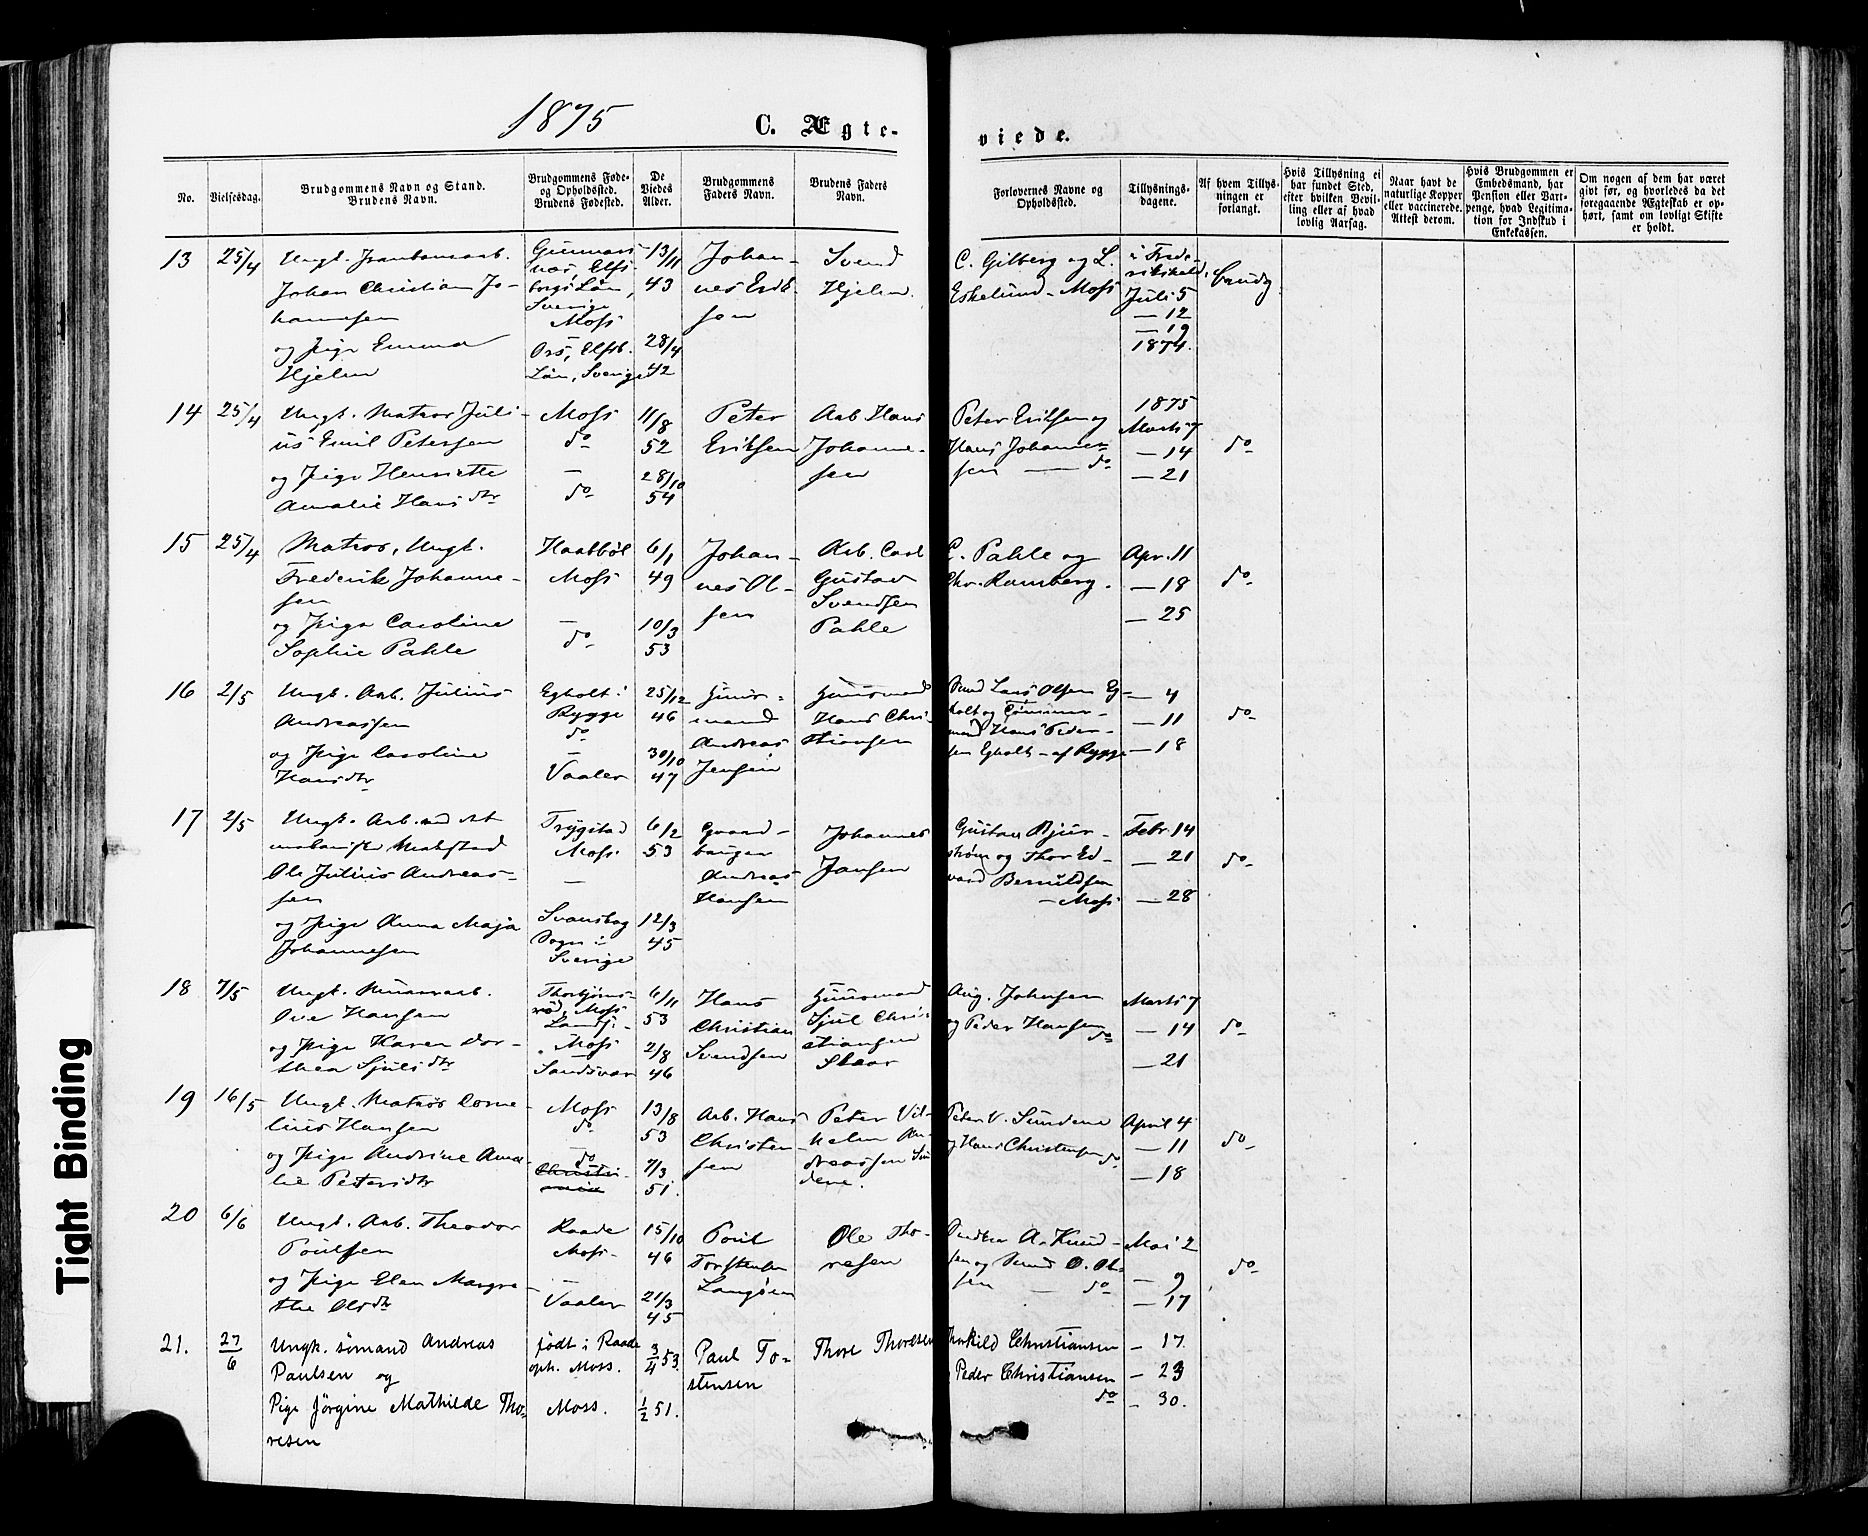 1875
C. Ægte-
viede.
No.
Vielsesdag.
Brudgommens Navn og Stand.
Brudens Navn.
Brudgommens Føde-
og Opholdssted.
Brudens Fødested.
De
Viedes
Alder.
Brudgommens
Faders Navn.
Brudens Faders
Navn.
Forlovernes Navne og
Opholdssted.
Tillysnings-
dagene.
Af hvem Tillys-
ningen er
forlangt.
Hvis Tillysning ei
har fundet Sted,
efter hvilken Bevil-
ling eller af hvad
lovlig Aarsag.
Naar havt de
naturlige Kopper
eller vaccinerede.
Attest derom.
Hvis Brudgommen er
Embedsmand, har
Pension eller Vart-
penge, hvad Legitima-
tion for Indskud i
Enkekassen.
Om nogen af dem har været
givt før, og hvorledes da det
foregaaende Ægteskab er op-
hørt, samt om lovligt Skifte
er holdt.
13
25/4
Ungk. Jernbanearb.
Johan Christian Jo-
hannesen
og Pige Emma
Hjelm
Gunnars-
näs, Elfs-
borgs Län,
Sverige
Moss
Örs, Elfsb.
Län, Sverige
13/11
43
28/4
42
Johan-
nes Erik-
son
Svend
Hjelm
C. Gilberg og L.
Eskelund - Moss
i Frede-
rikshald,
Juli 5
— 12
— 19
1874.
14
25/4
Ungk. Matros Juli-
us Emil Petersen
og Pige Henriette
Amalie Hansdtr
Moss
do
—
do
11/8
52
28/10
54
Peter
Eriksen
Arb. Hans
Johanne-
sen
Peter Eriksen og
Hans Johanne-
sen — do
1875
Marts 7
— 14
— 21
do
15
25/4
Matros, Ungk.
Frederik Johanne-
sen
og Pige Caroline
Sophie Pahle
Haabbøl
Moss
—
do
6/1
49
10/3
53
Johan-
nes Ol-
sen
Arb. Carl
Gustav
Svendsen
Pahle
C. Pahle og
Chr. Ramberg.
Apr. 11
— 18
— 25
do
16
2/5
Ungk. Arb. Julius
Andreassen
og Pige Caroline
Hansdtr
Egholt i
Rygge
do
—
Vaaler
25/12
46
30/10
47
Huus-
mand
Andreas
Jensen
Huusmand
Hans Chri-
stiansen
Lars Olsen Eg-
holt og Tømmer-
mand Hans Peder-
sen Egholt - af Rygge
— 4
— 11
— 18
do
17
2/5
Ungk. Arb. ved det
mekaniske Værksted
Ole Julius Andreas-
sen
og Pige Anna Maja
Johannesen
Trygstad
Moss
—
Svanskog
Sogn i
Sverige
6/2
53
12/3
45
Gaard-
bruger
Andreas
Hansen
Johannes
Jansen
Gustav Bjur-
strøm og Thor Ed-
vard Berntsen
- Moss
Febr 14
— 21
— 28
do
18
7/5
Ungk.
Ove Hansen
og Pige Karen Dor-
thea Sjulsdtr
Thorbjørns-
rød, Moss
Landsf.
Moss
Sandsvær
6/11
53
2/8
46
Hans
Christian
Svendsen
Huusmand
Sjul Chris-
tiansen
Skaar
Aug. Johnsen
og Peder Hansen
do
Marts 7
— 14
— 21
do
19
16/5
Ungk. Matros Corne-
lius Hansen
og Pige Andrine Ama-
lie Petersdtr
Moss
do
do
Christi-
ania
13/8
53
7/3
51.
Arb. Hans
Christen-
sen
Peter Vil-
helm An-
dreassen Sun-
dene.
Peter V. Sundene
og Hans Christensen do
April 4
— 11
— 18
do
20
6/6
Ungk. Arb. Theodor
Poulsen
og Pige Elen Margre-
the Olsdtr
Raade
Moss
—
Vaaler
15/10
46
21/3
45
Poul
Torstensen
Langøen
Ole Tho-
resen
A. Knud-
sen og O. Ol-
sen — do
Mai 2
— 9
— 17
do
21.
27/6
Ungk. sømand Andreas
Paulsen og
Pige Jörgine Mathilde Tho-
resen
født i Raade
oph. Moss.
Moss.
3/4 53.
1/2 51.
Paul To-
stensen
Thore Thoresen
Thorkild Christiansen
Peder Christiansen
do
— 17.
— 23
— 30.
Tight Binding